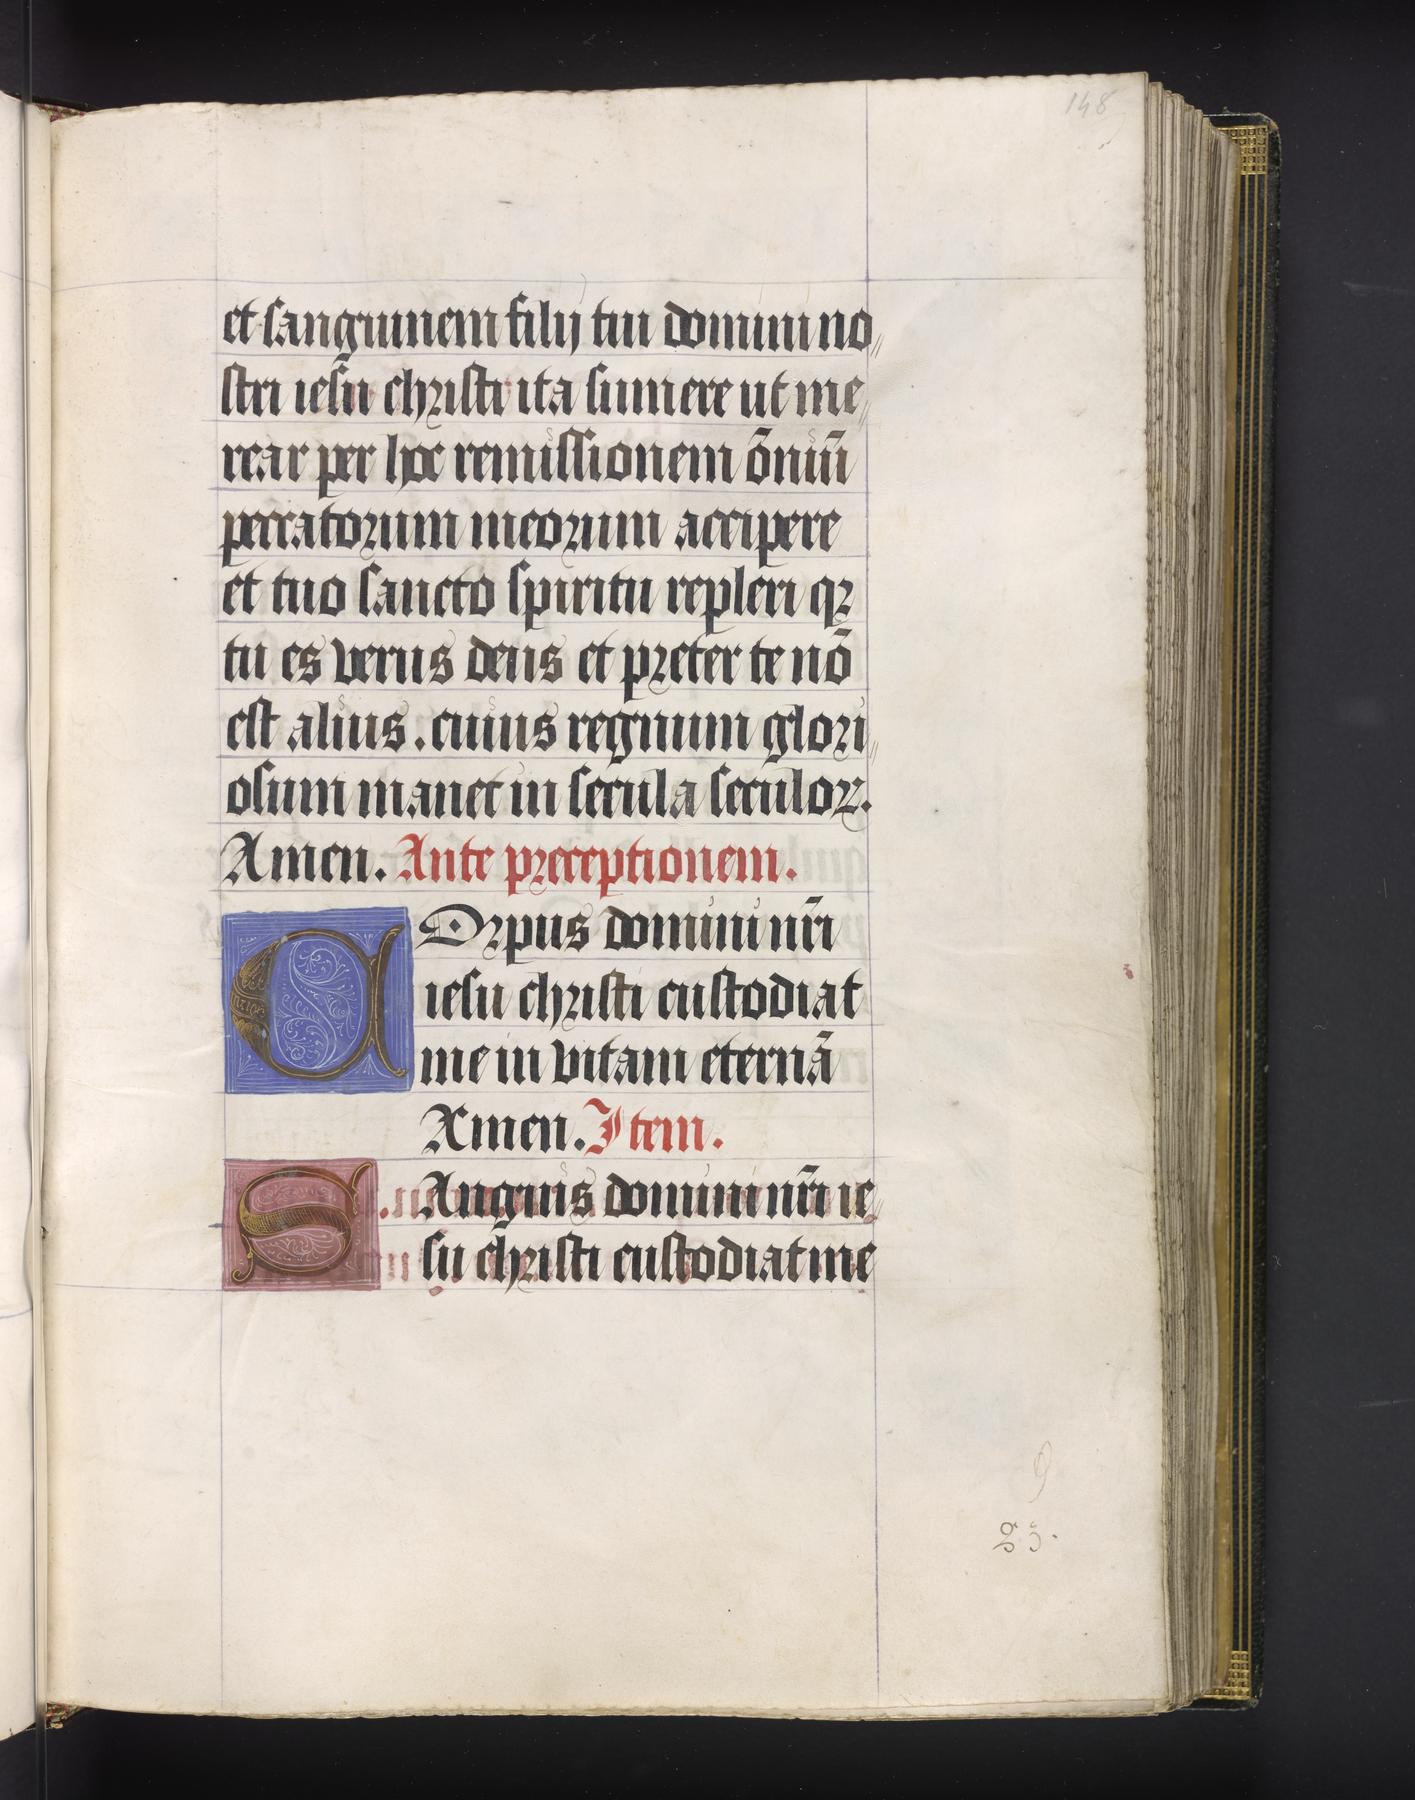 148
et sanguinem filij tui domini no〃
stri iesu christi ita sumere ut me〃
rear per hoc remissionem õniũ
peccatorum meorum accipere
et tuo sancto spiritu repleri qꝛ
tu es verus deus et preter te nõ
est alius. cuius regnum glori〃
osum manet in secula seculoꝝ.
Amen. Ante preceptionem.
COrpus domini nr̃i
iesu christi custodiat
me in vitam eternã
Amen. Item.
SAnguis domini nr̃i ie〃
su christi custodiat me